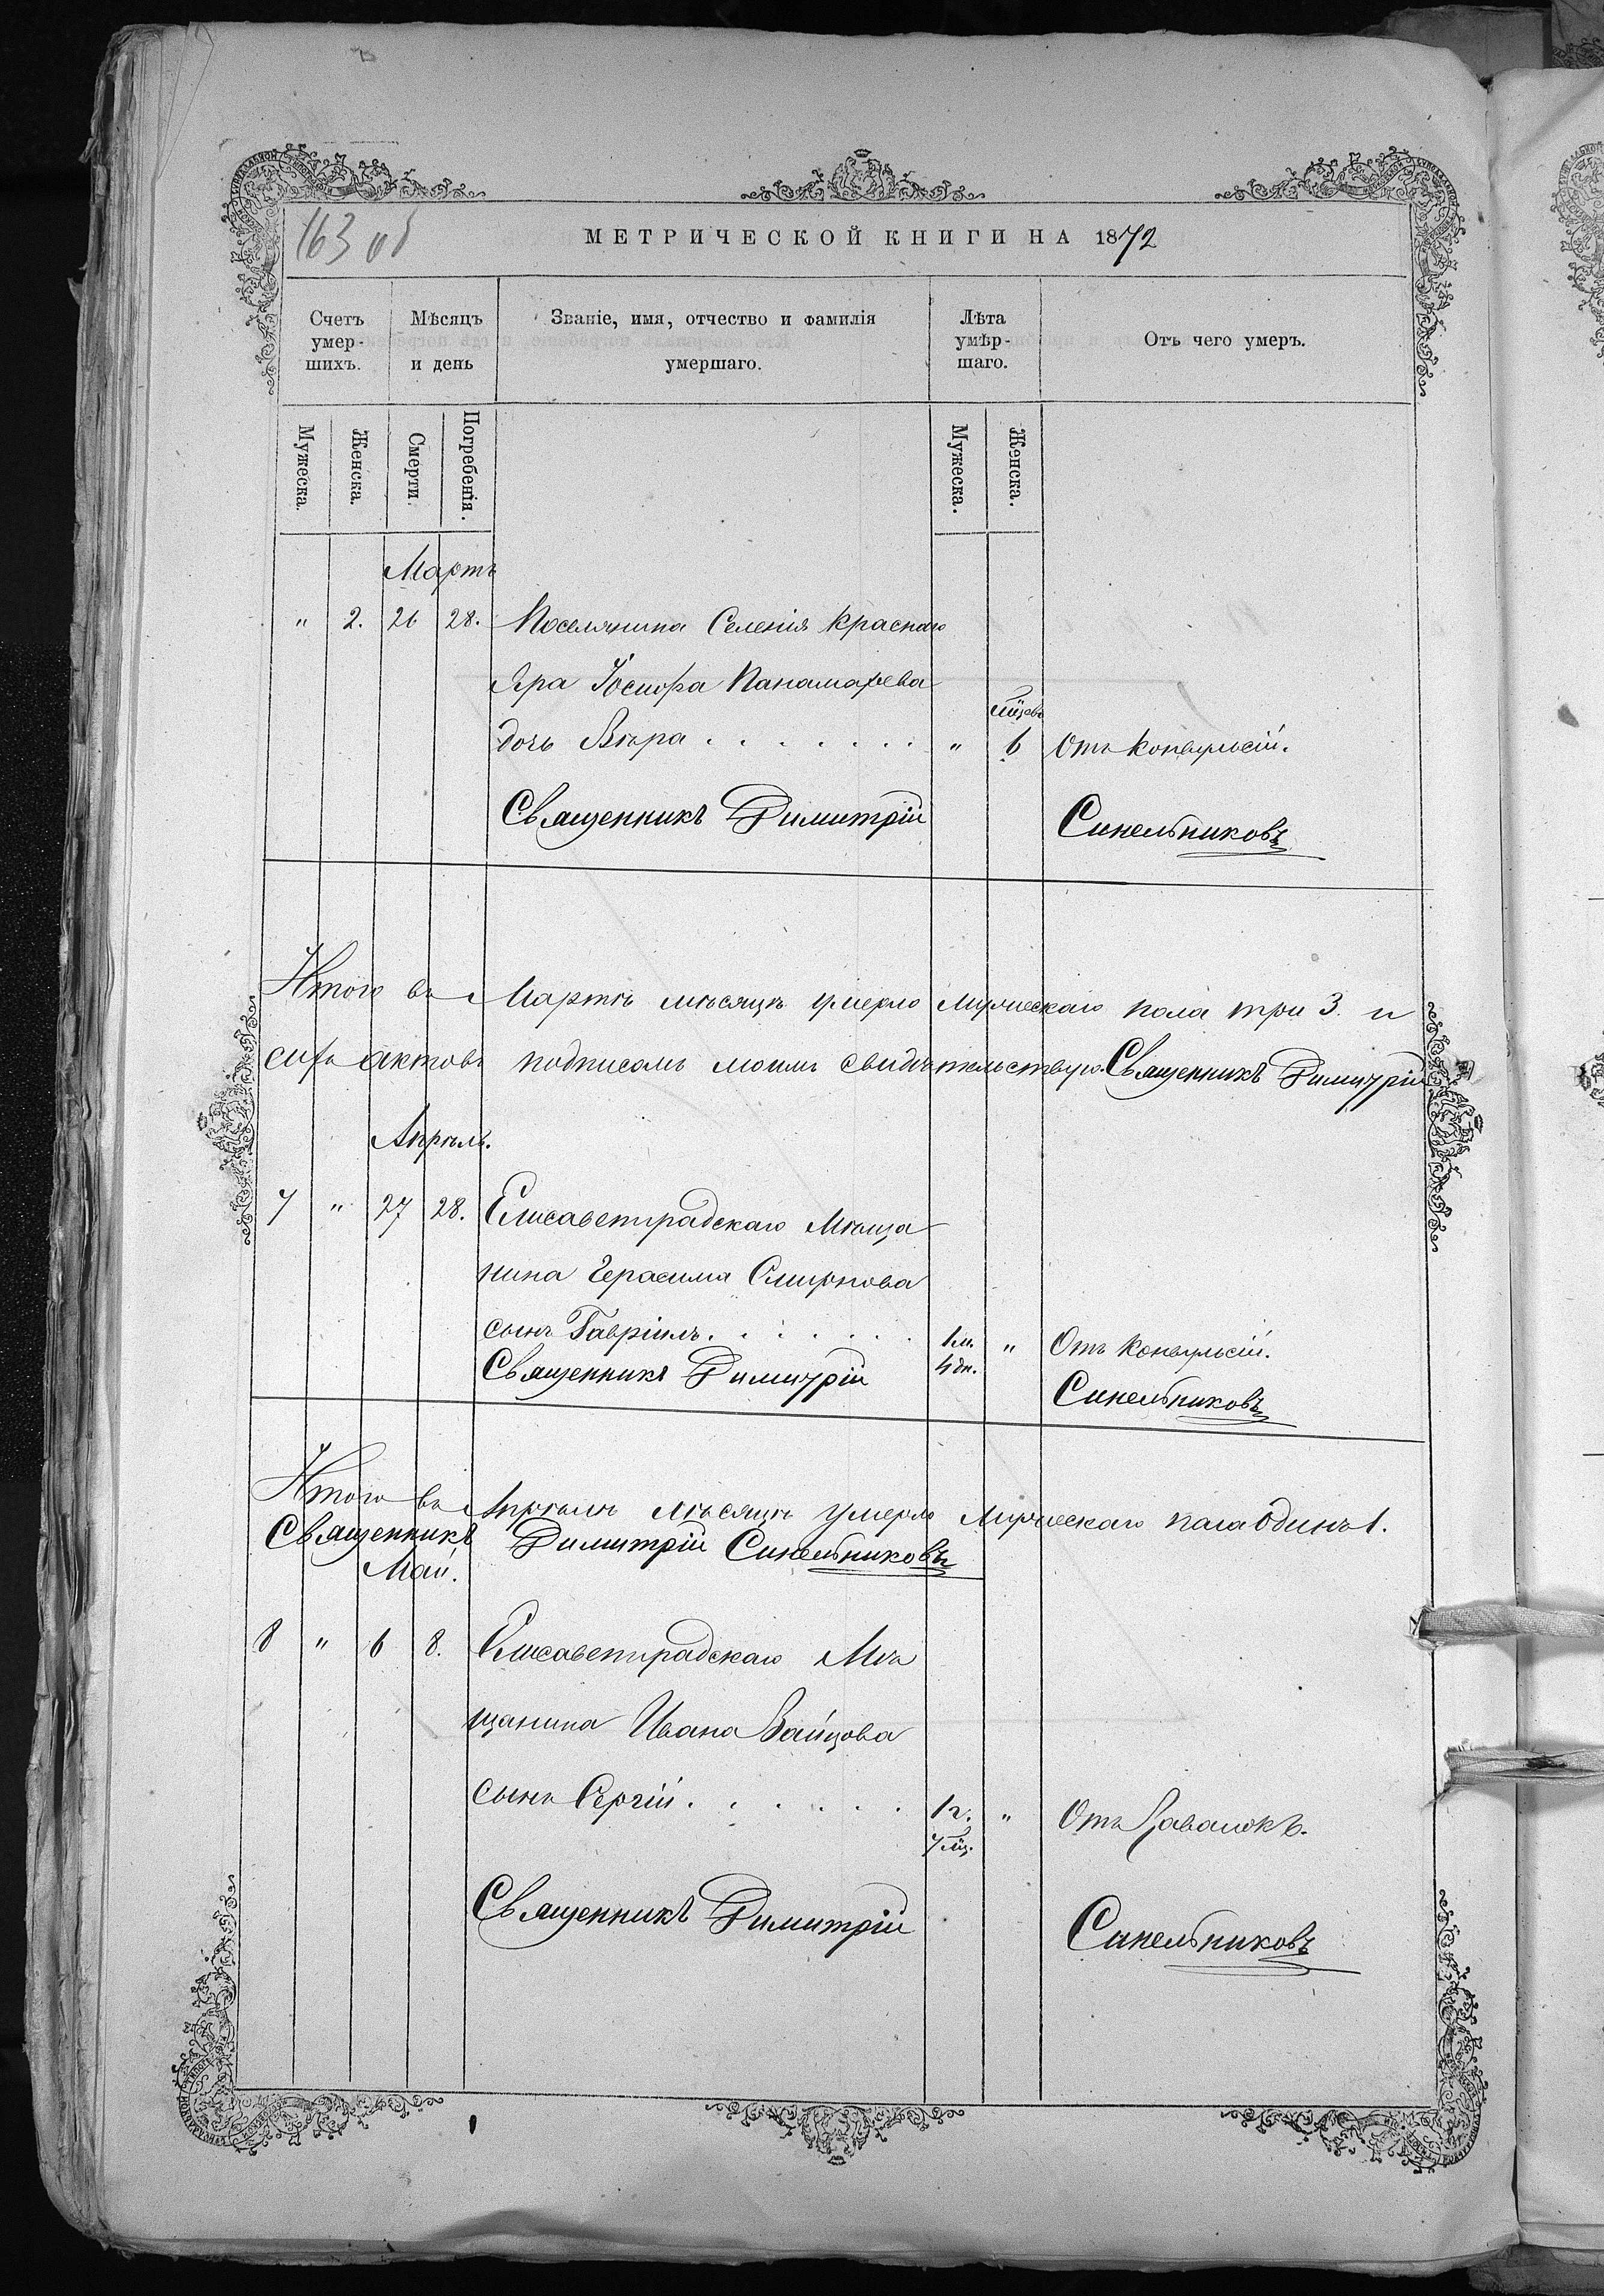 163 об
МЕТРИЧЕСКОЙ КНИГИ НА 1872
Счетъ умер- шихъ.
Мѣсяцъ и день
Званіе, имя, отчество и фамилія умершаго.
Лѣта умѣр- шаго.
Отъ чего умеръ.
Мужеска. Женска. Смерти. Погребенія. Мужеска. Женска.
Мартъ
" 2. 26 28. Поселянина Селенія Краснаго
Яра Іосифа Панамарева
мцовъ
дочь Вѣра . . . . . . . " 6 Отъ конвульсій.
Священникъ Димитрій Синельниковъ
Итого въ Мартѣ мѣсяцѣ умерло Мужескаго пола три 3. и
сихъ актовъ подписомъ моимъ свидѣтельствую. Священникъ Димитрій
Апрѣль.
7 " 27 28. Елисаветградскаго Мѣща
нина Герасима Смирнова
сынъ Гавріилъ. . . . . . . 1 м. " Отъ конвульсій.
4 дн.
Священникъ Димитрій Синельниковъ
Итого въ Апрѣлѣ мѣсяцѣ умерло Мужескаго пола одинъ 1.
Священникъ Димитрій Синельниковъ
Май.
8 " 6 8. Елисаветградскаго Мѣ
щанина Ивана Зайцова
сынъ Сергій. . . . . . . 1 г. " Отъ Завалокъ.
7 мц.
Священникъ Димитрій Синельниковъ